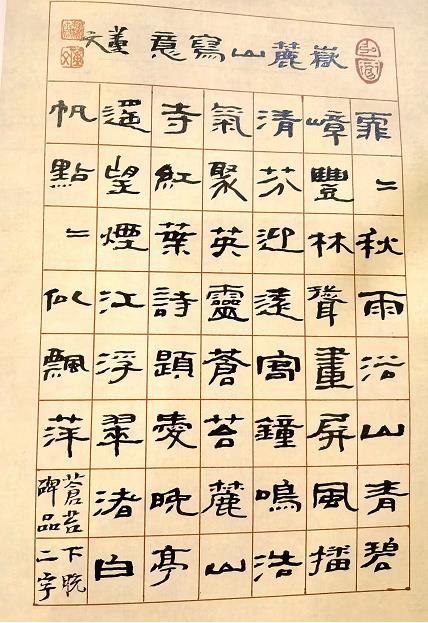 嶽麓山寫意
霏〻秋雨浴山青碧
嶂豐林聳畫屏風播
清芬迎遠寓鐘鳴浩
氣聚英靈蒼苔麓山
寺紅葉詩題愛晚亭
遥望煙江浮翠渚白
帆點〻似飄萍
蒼苔下脱
碑品二字